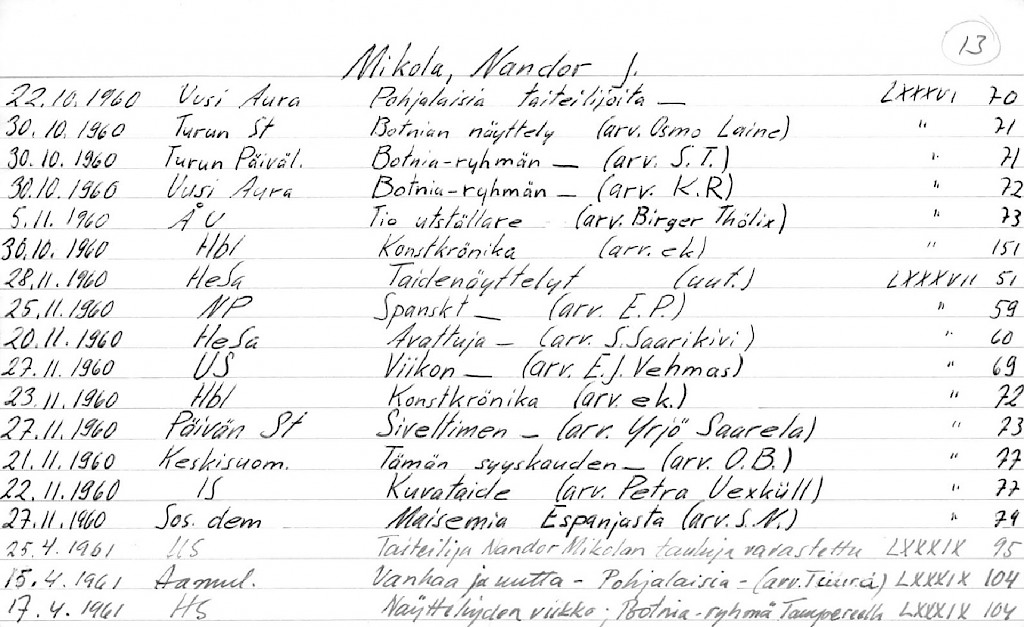 13
Mikola, Nandor J.
22.10.1960 Uusi Aura Pohjalaisia taiteilijoita — LXXXVI 70
30.10.1960 Turun St Botnian näyttely (arv. Osmo Laine) " 71
30.10.1960 Turun Päiväl. Botnia-ryhmän — (arv. S.T.) " 71
30.10.1960 Uusi Aura Botnia-ryhmän — (arv. K.R) " 72
5.11.1960 ÅU Tio utställare (arv. Birger Thölix) " 73
30.10.1960 Hbl Konstkrönika (arv. ek) " 151
28.11.1960 HeSa Taidenäyttelyt (uut.) LXXXVII 51
25.11.1960 NP Spanskt — (arv. E.P.) " 59
20.11.1960 HeSa Avattuja — (arv. S.Saarikivi) " 60
27.11.1960 US Viikon — (arv. E.J. Vehmas) " 69
23.11.1960 Hbl Konstkrönika (arv. ek.) " 72
27.11.1960 Päivän St Siveltimen — (arv. Yrjö Saarela) " 73
21.11.1960 Keskisuom. Tämän syyskauden — (arv. O.B.) " 77
22.11.1960 IS Kuvataide (arv. Petra Uexküll) " 77
27.11.1960 Sos. dem Maisemia Espanjasta (arv. S.N.) " 79
25.4.1961 US Taiteilija Nandor Mikolan tauluja varastettu LXXXIX 95
15.4.1961 Aamul. Vanhaa ja uutta - Pohjalaisia - (arv. ) LXXXIX 104
17.4.1961 HS Näyttelyiden viikko; Botnia-ryhmä Tampereella LXXXIX 104